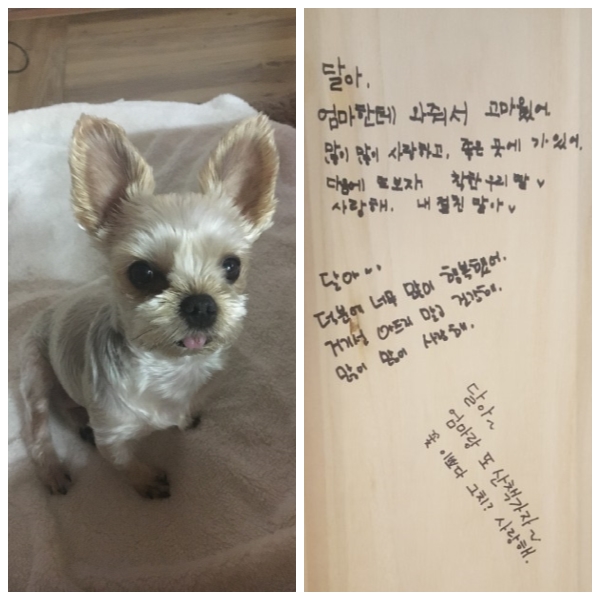 달아.
엄마한테 와줘서 고마웠어
많이 많이 사랑하고, 좋은 곳에 가 있어.
다음에 또보자 착한 우리 딸
사랑해. 내 절친 달아
달아
덕분에 너무 많이 행복했어.
거기서 아프지 말고 건강해.
많이 많이 사랑해.
달아~
엄마랑 또 산책가자~
꽃 이쁘다 그치? 사랑해.